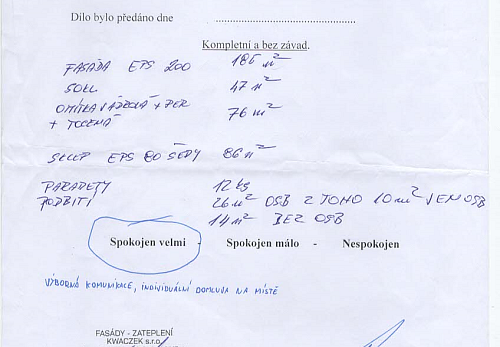 Dílo bylo předáno dne ........................................
Kompletní a bez závad.
FASÁDA EPS 200 186 m²
SOKL 47 m²
OMÍTKA VÁPENNÁ + PER 76 m²
+ TOČENÁ
SKLEP EPS 80 ŠEDÝ 86 m²
PARAPETY 12 ks
PODBITÍ 26 m² OSB Z TOHO 10 m² VEN OSB
14 m² BEZ OSB
Spokojen velmi - Spokojen málo - Nespokojen
VÝBORNÁ KOMUNIKACE, INDIVIDUÁLNÍ DOMLUVA NA MÍSTĚ
FASÁDY - ZATEPLENÍ
KWACZEK s.r.o.